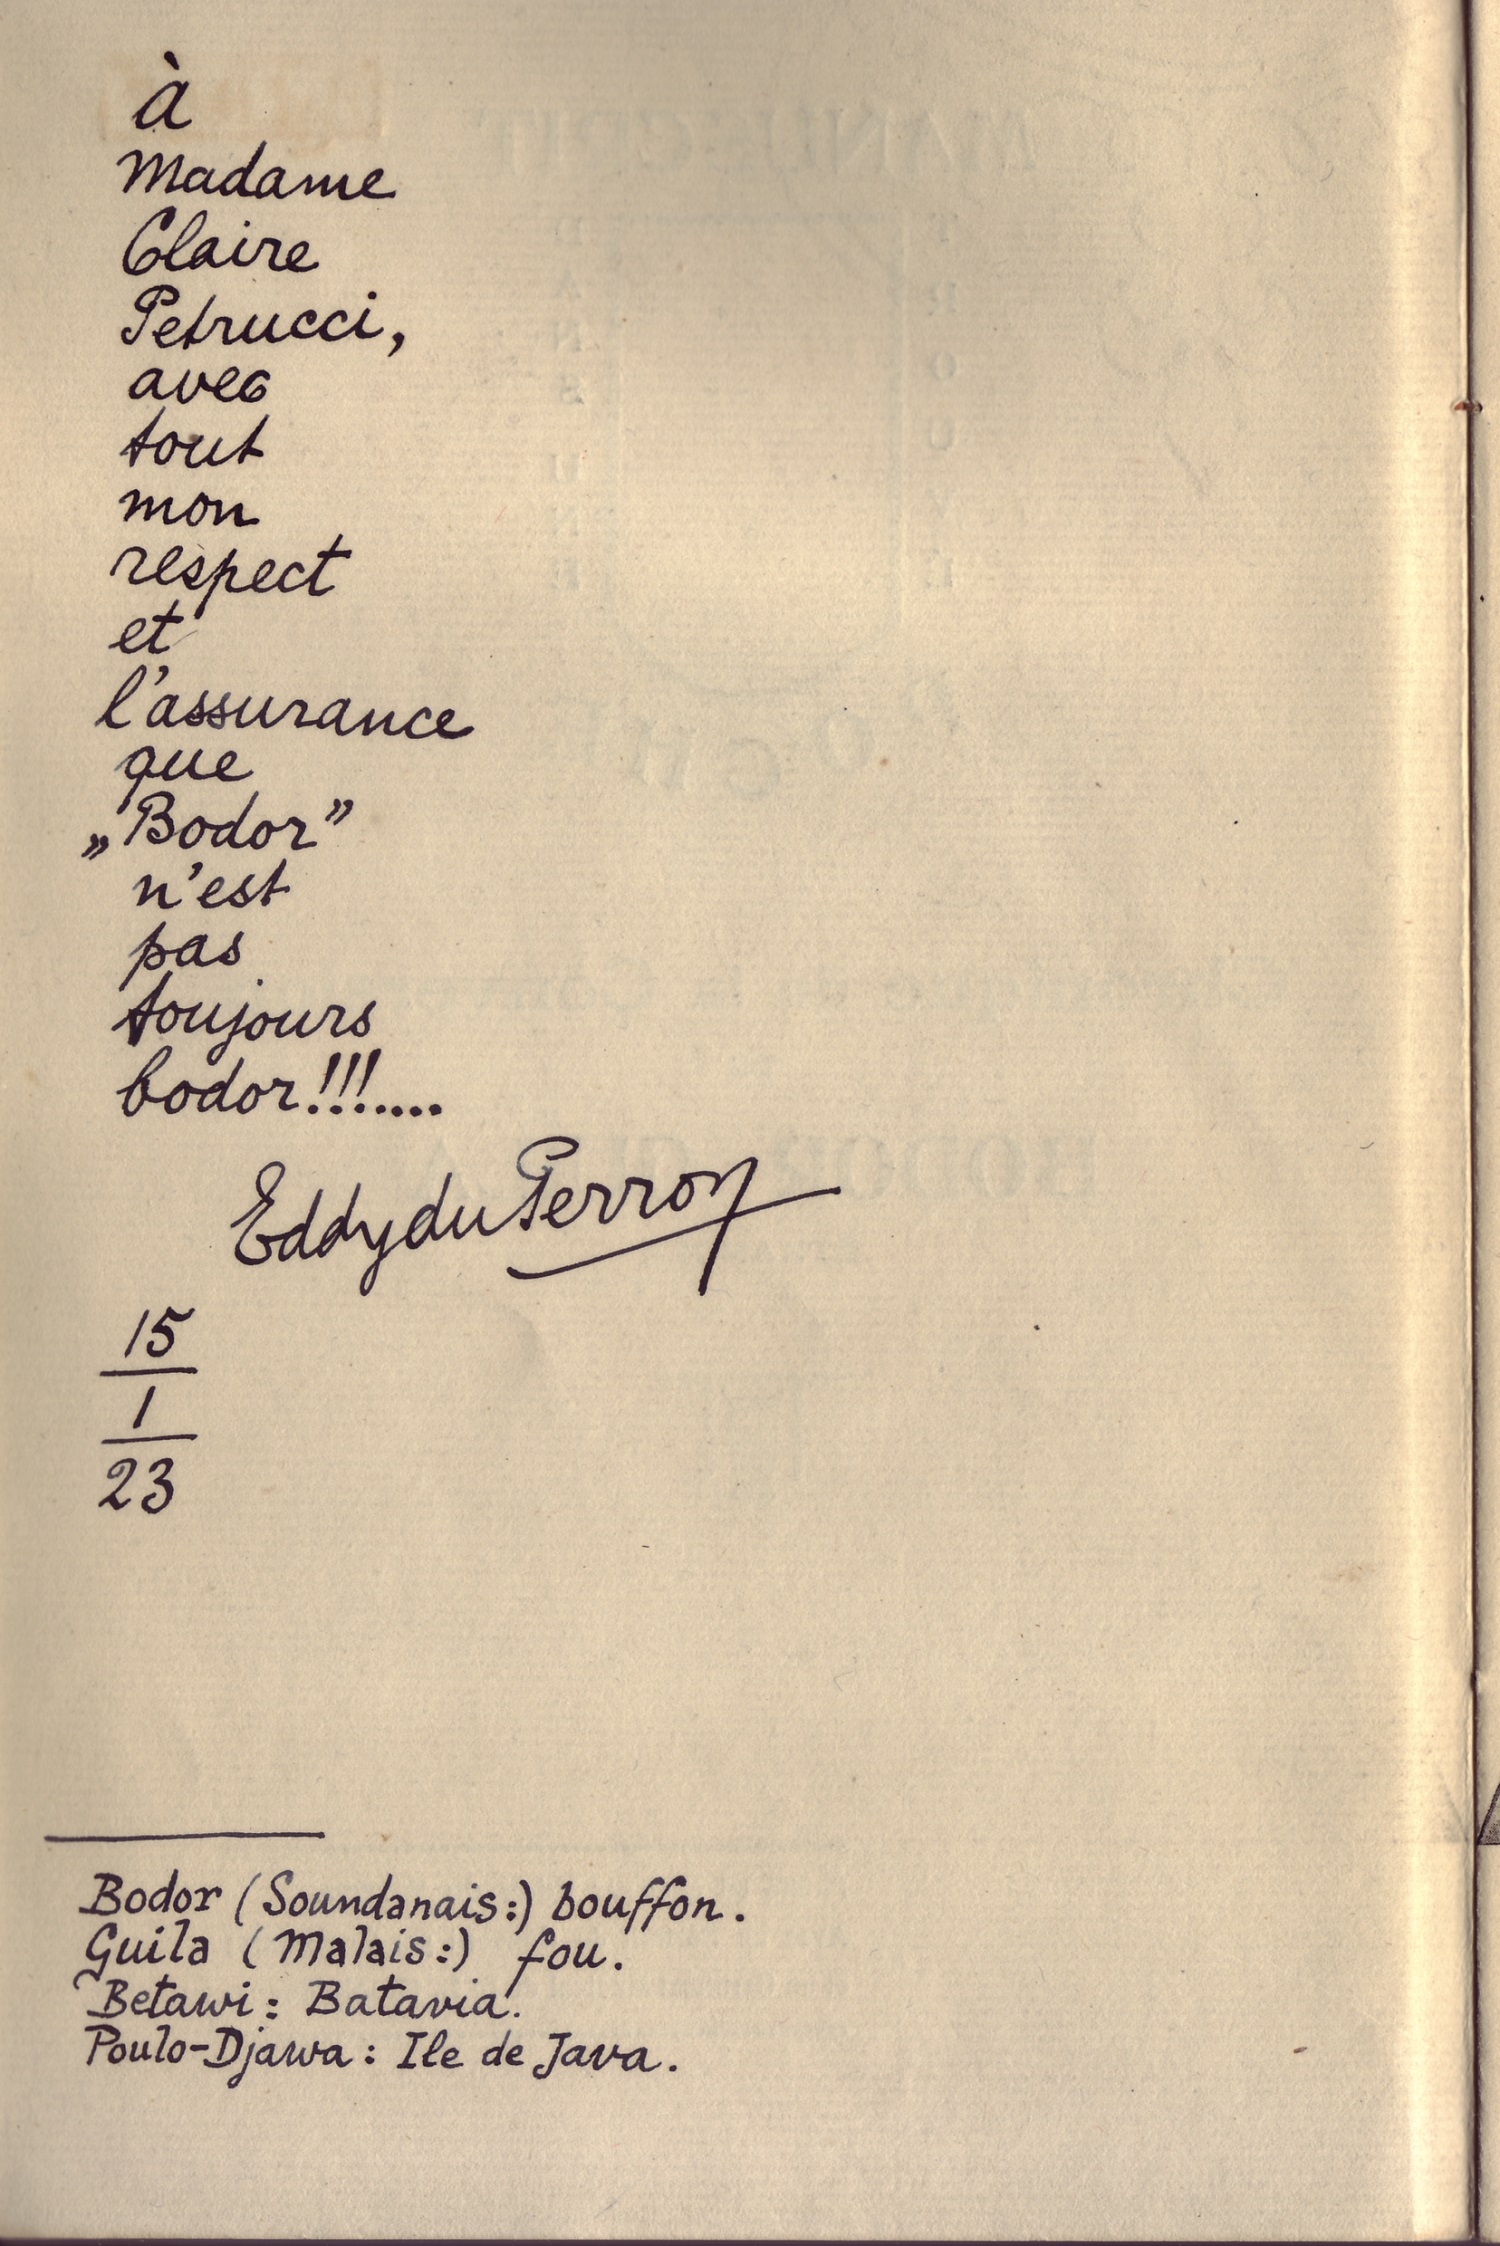 à
Madame
Claire
Petrucci,
avec
tout
mon
respect
et
l'assurance
que
„Bodor”
n'est
pas
toujours
bodor!!!....
Eddy du Perron
15
1
23
Bodor (Soundanais:) bouffon.
Guila (Malais:) fou.
Betawi: Batavia.
Poulo-Djawa: Ile de Java.